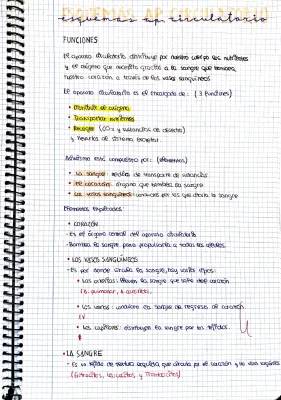 esquemas ap. circulatorio
FUNCIONES
El aparato circulatorio distribuye por nuestro cuerpo los nutrientes
y el oxígeno que necesita gracias a la sangre que bombea
nuestro corazón a través de los vasos sanguíneos
El aparato circulatorio es el encargado de: (3 funciones)
• Distribuir el oxígeno
• Transportar nutrientes
• Recoger (CO2 y sustancias de desecho)
y llevarlos al sistema excretor
Asimismo está compuesto por: (elementos)
• La sangre: medio de transporte de sustancias
• el corazón: órgano que bombea la sangre
• Los vasos sanguíneos: conductos por los que circula la sangre
Elementos explicados:
• CORAZÓN
- Es el órgano central del aparato circulatorio
- Bombea la sangre para propulsarla a todas las células.
• LOS VASOS SANGUÍNEOS
- Es por donde circula la sangre, hay varios tipos:
• Las arterias: llevan la sangre que sale del corazón
(A. pulmonar, A. aorta)
• Las venas: conducen la sangre de regreso al corazón
• Los capilares: distribuyen la sangre por los tejidos.
• LA SANGRE
- Es un tejido de textura líquida que circula por el corazón y los vasos sanguíneos
(Eritrocitos, leucocitos y trombocitos)